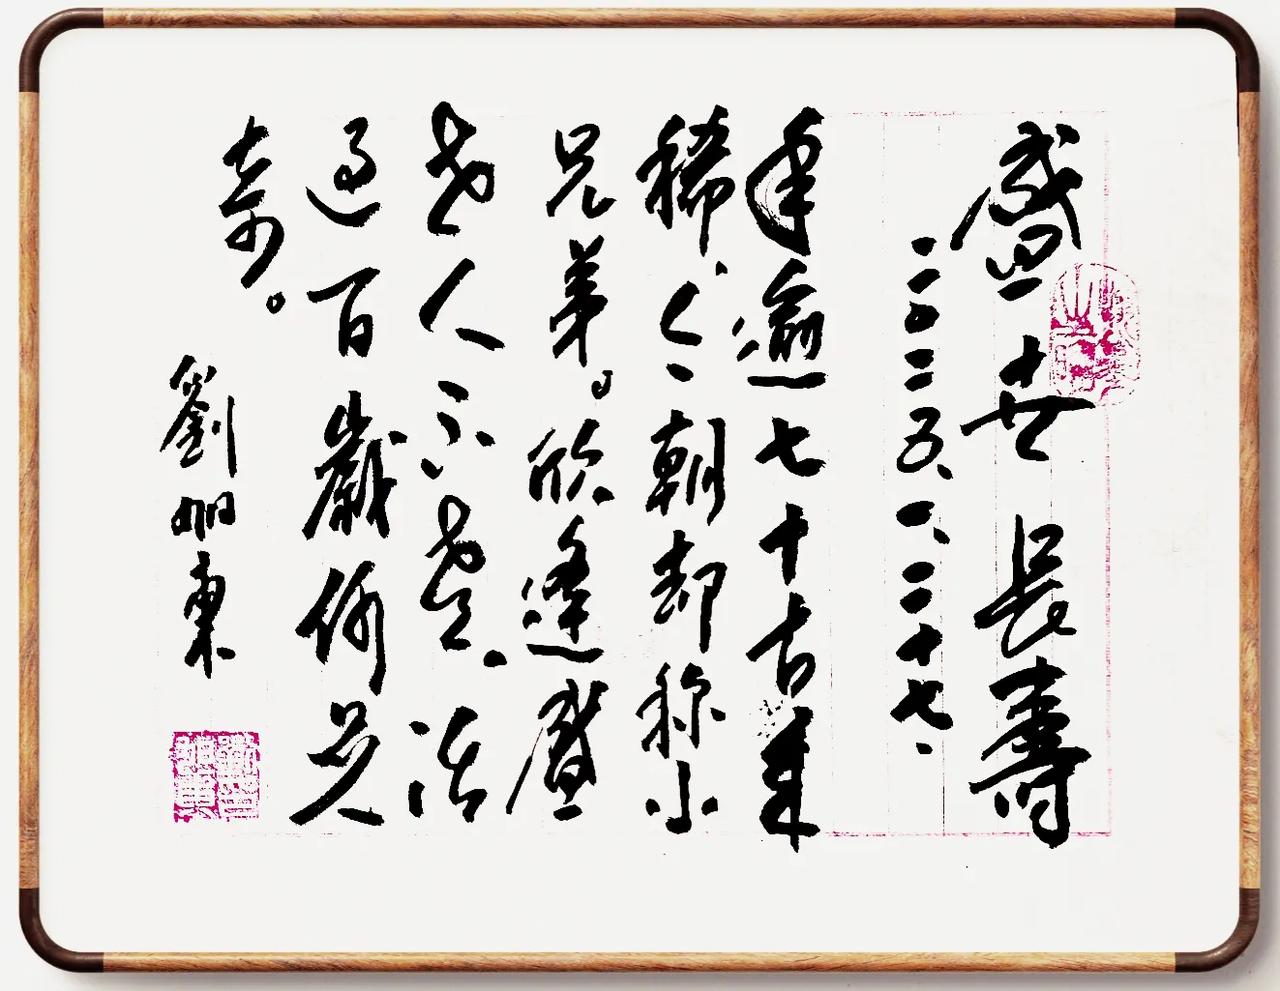 盛世長壽
二〇二五、一、二十七、
年逾七十古来
稀,今朝却称小
兄弟。欣逢盛
世人不老,活
過百歲何足
奇。
劉旭東